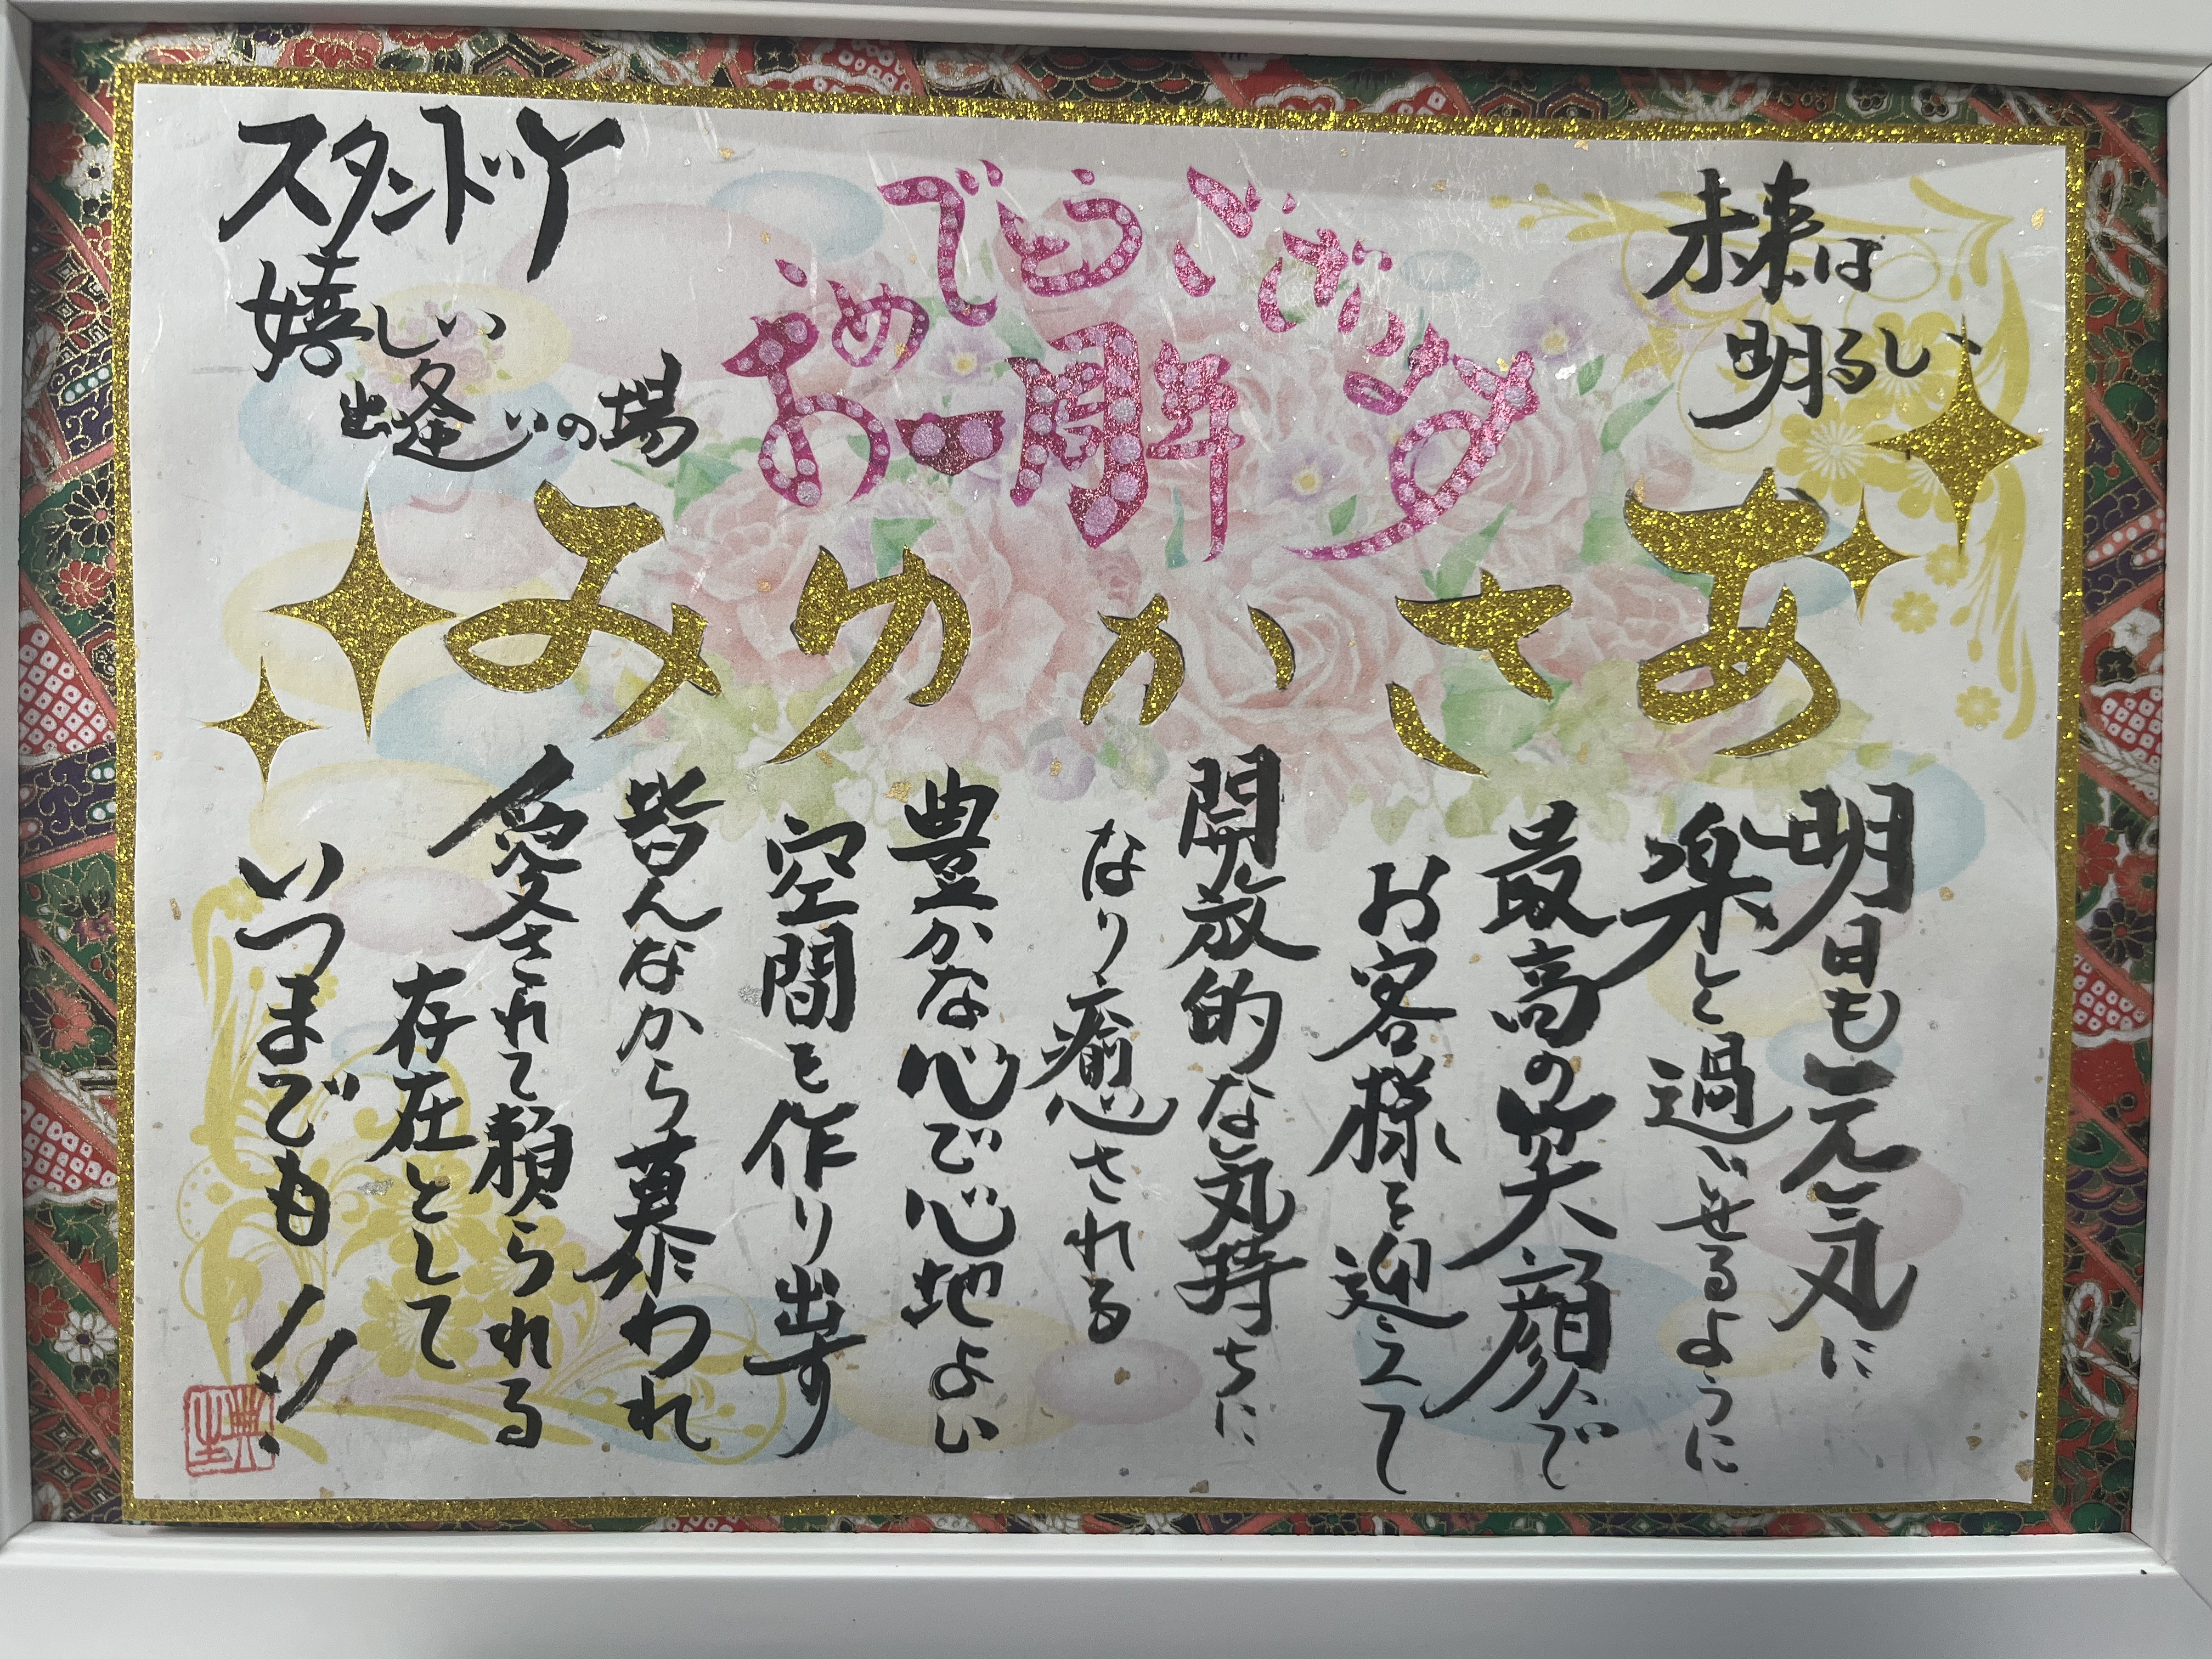 未来は
明るい
おめでとうございます
一周年
スタンドY
嬉しい
出逢いの場
あさかゆみ
明日も元気に
楽しく過ごせるように
最高の笑顔で
お客様を迎えて
開放的な気持ちに
なり癒される
豊かな心で心地よい
空間を作り出す
皆んなから慕われ
愛されて頼られる
存在として
いつまでも!!